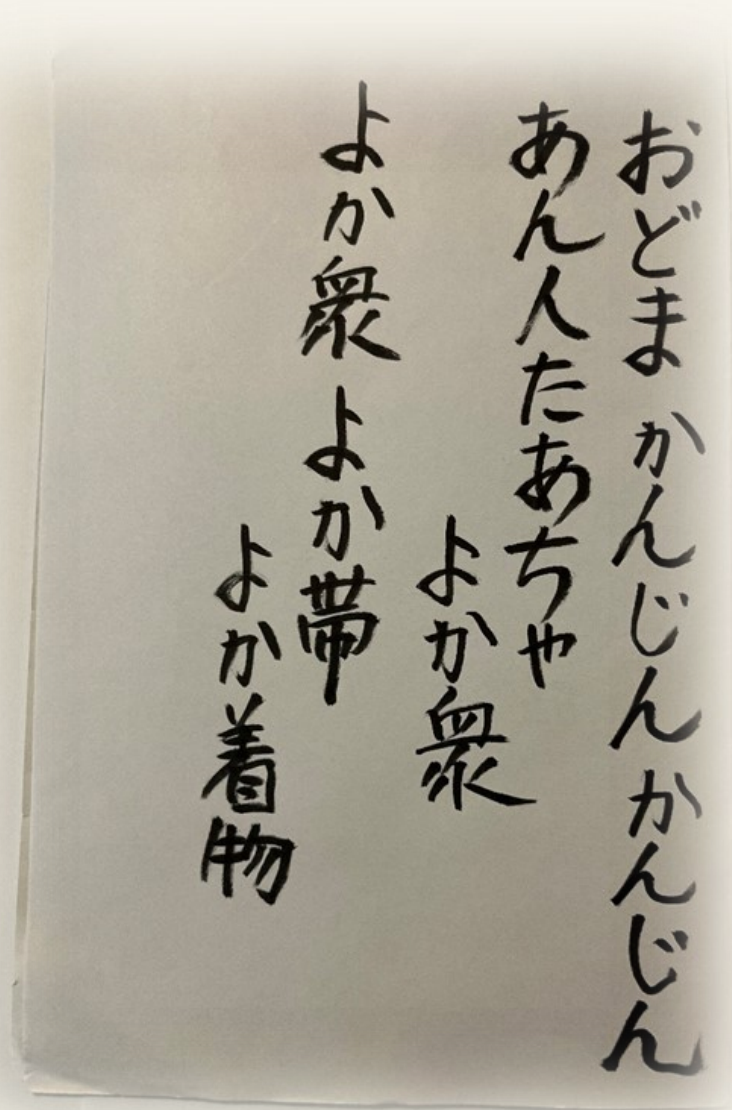 おどま かんじんかんじん
あん人たあちゃ
よか衆
よか衆 よか帯
よか着物